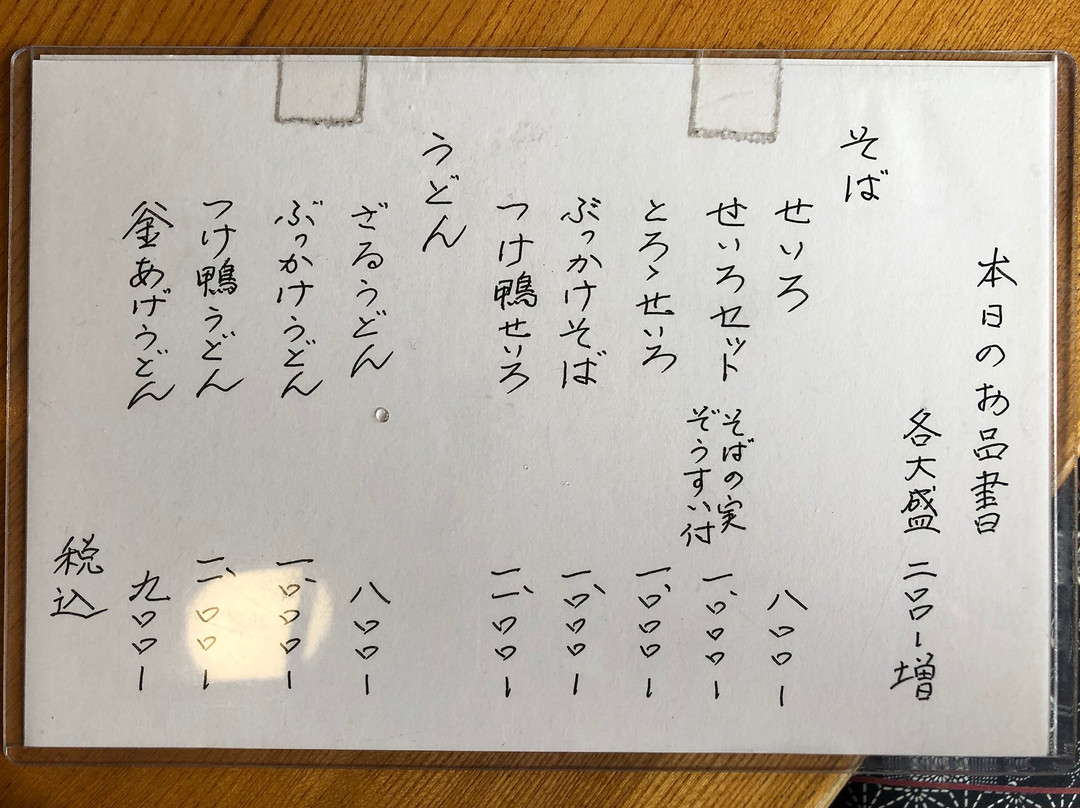 本日のお品書
各大盛 二〇〇ー増
そば
せいろ 八〇〇ー
せいろセット そばの実ぞうすい付 一、〇〇〇ー
とろゝせいろ 一、〇〇〇ー
ぶっかけそば 一、〇〇〇ー
つけ鴨せいろ 一、一〇〇ー
うどん
ざるうどん 八〇〇ー
ぶっかけうどん 一、〇〇〇ー
つけ鴨うどん 一、一〇〇ー
釜あげうどん 九〇〇ー
税込